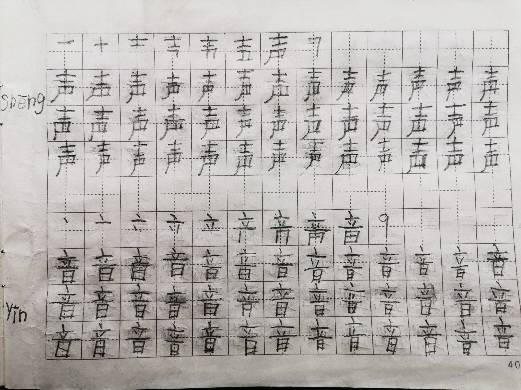 一 十 士 声 7
声 声 声 声 声 声 声 声 声 声 声 声 声
shēng 声 声 声 声 声 声 声 声 声 声 声 声 声
声 声 声 声 声 声 声 声 声 声 声 声 声
丶 亠 立 音 9
音 音 音 音 音 音 音 音 音 音 音 音 音
yīn 音 音 音 音 音 音 音 音 音 音 音 音 音
音 音 音 音 音 音 音 音 音 音 音 音 音
40